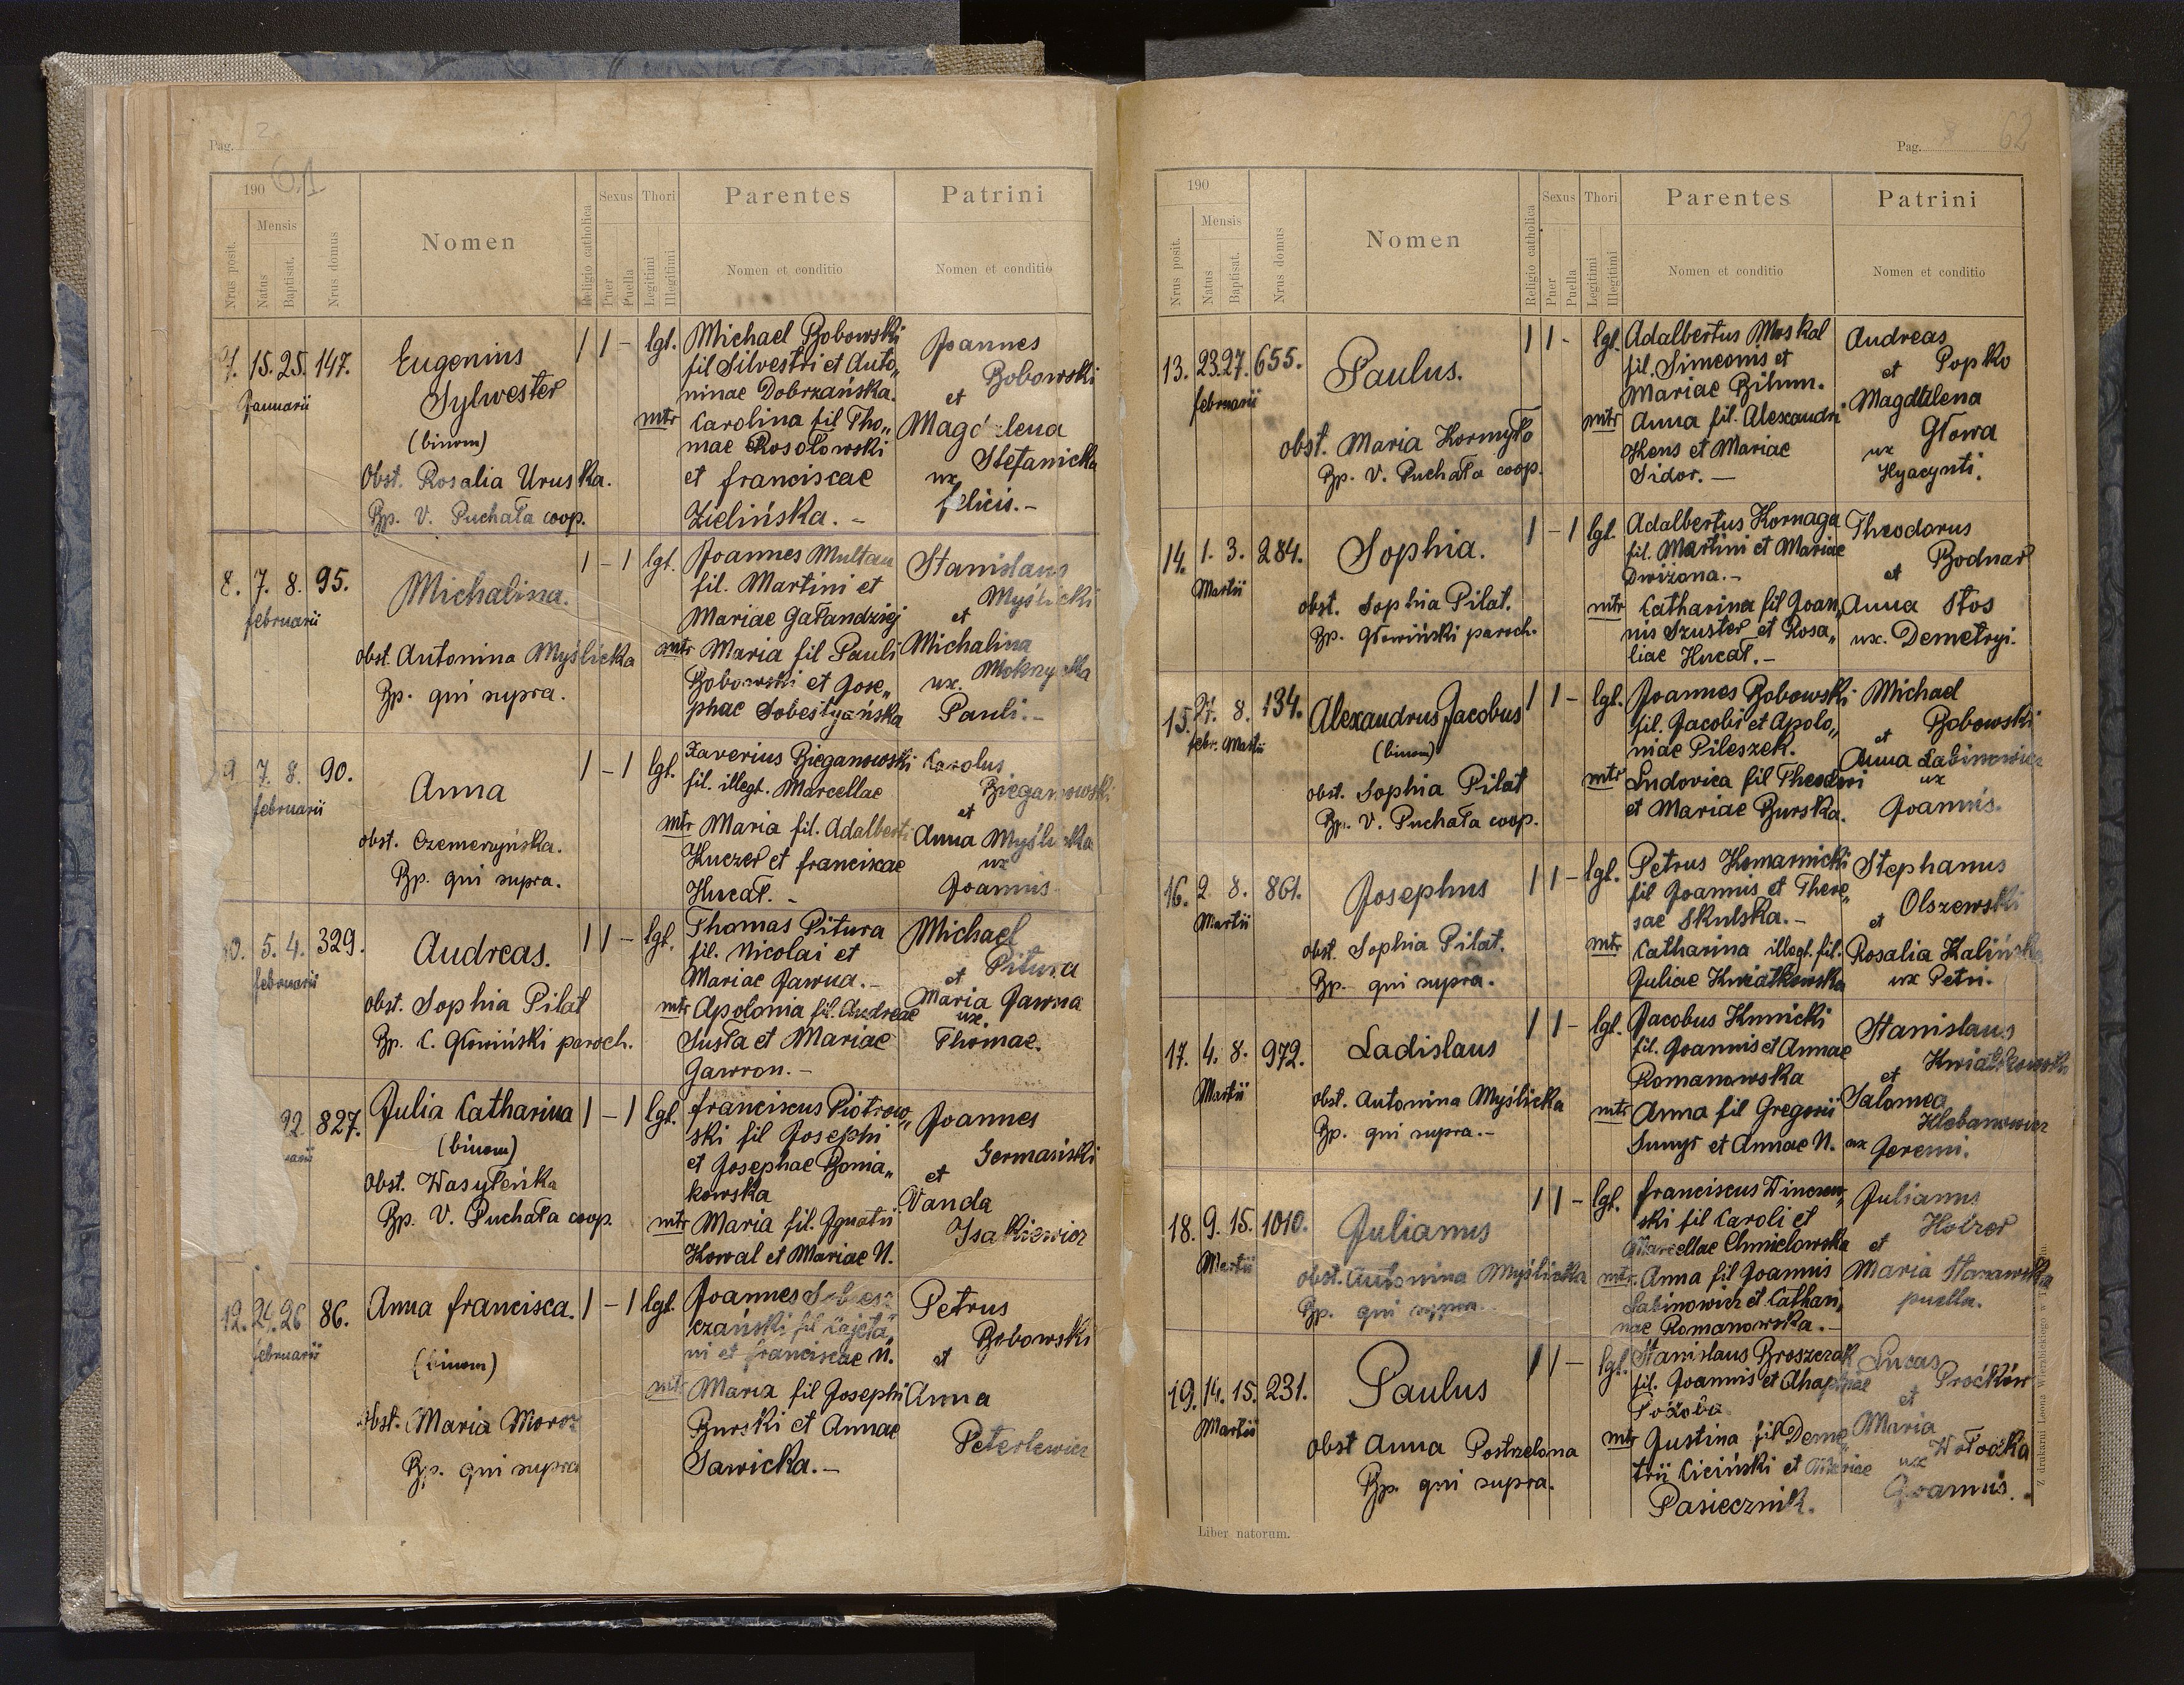 Pag. 2
190
61
Nrus posit.
Mensis
Natus
Baptisat.
Nrus domus
Nomen
Religio catholica
Sexus
Puer
Puella
Thori
Legitimi
Illegitimi
Parentes
Nomen et conditio
Patrini
Nomen et conditio
7. 15. 25. 147.
Januarii
Eugenius
Sylwester
(binom)
Obst. Rosalia Uruska.
Bp. V. Puchała coop.
1 1 - lgt.
Michael Bobowski
fil Silvestri et Anto„
ninae Dobrzańska.
mtr Carolina fil Tho„
mae Rosołowski
et franciscae
Zielińska. -
Joannes
Bobowski
et
Magdalena
Stefanicka
ux
felicis.-
8. 7. 8. 95.
februarii
Michalina.
obst. Antonina Myślicka
Bp. qui supra.
1 - 1 lgt.
Joannes Multan
fil. Martini et
Mariae Gałandziej
mtr Maria fil Pauli
Bobowski et Jose„
phae Sobestyańska
Stanislaus
Myślicki
et
Michalina
ux.
Pauli.-
9 7. 8. 90.
februarii
Anna
obst. Czemeryńska.
Bp. qui supra.
1 - 1 lgt.
Xaverius Bieganowski
fil. illegt. Marcellae
mtr Maria fil. Adalberti
Kuczer et franciscae
Hucał. -
Carolus
Bieganowski
et
Anna Myślicka
ux
Joannis
10. 5. 4. 329.
februarii
Andreas.
obst. Sophia Pilat
Bp. C. Głowiński paroch.
1 1 - lgt.
Thomas Pitura
fil. Nicolai et
Mariae Jawna.-
mtr Apolonia fil. Andreae
Susła et Mariae
Gawron.-
Michael
Pitura
et
Maria Jawna
ux.
Thomae.
22 827.
Julia Catharina
(binom)
Obst. Wasyleńka
Bp. V. Puchała coop.
1 - 1 lgt.
franciscus Piotrow„
ski fil Josephi
et Josephae Bonia„
kowska
mtr Maria fil. Ignatii
Kowal et Mariae N.
Joannes
Germasiński
et
Wanda
Isakiewicz
12. 24. 26 86.
februarii
Anna francisca.
(binom)
obst. Maria Moroz
Bp. qui supra
1 - 1 lgt.
Joannes Sobesz
czański fil Cajeta„
ni et franciscae N.
mtr Maria fil Josephi
Burski et Annae
Sawicka.-
Petrus
Bobowski
et
Anna
Peterlewicz
Pag. 62
190
Nrus posit.
Mensis
Natus
Baptisat.
Nrus domus
Nomen
Religio catholica
Sexus
Puer
Puella
Thori
Legitimi
Illegitimi
Parentes
Nomen et conditio
Patrini
Nomen et conditio
13. 23. 27. 655.
februarii
Paulus.
obst. Maria Kormyło
Bp. V. Puchała coop.
1 1 - lgt.
Adalbertus Moskal
fil. Simeonis et
Mariae Bihun.
mtr Anna fil. Alexandri
Kens et Mariae
Sidor.-
Andreas
Popko
et
Magdalena
Głowa
ux
Hyacynti.
14. 1. 3. 284.
Martii
Sophia.
obst. Sophia Pilat.
Bp. Głowiński paroch.
1 - 1 lgt.
Adalbertus Kornaga
fil. Martini et Mariae
Dwizona.-
mtr Catharina fil Joan„
nis Szuster et Rosa„
liae Hucał.-
Theodorus
Bodnar
et
Anna Stos
ux. Demetryi.
15. 27. 8. 134.
febr. Martii
Alexandrus Jacobus
(binom)
obst. Sophia Pilat
Bp. V. Puchała coop.
1 1 - lgt.
Joannes Bobowski
fil. Jacobi et Apolo„
niae Pileszek.
mtr Ludovica fil Theodori
et Mariae Burska.
Michael
Bobowski
et
Anna Labinowicz
ux
Joannis.
16. 2 8. 861.
Martii
Josephus
obst. Sophia Pilat.
Bp. qui supra.
1 1 - lgt.
Petrus Komarnicki
fil Joannis et There„
sae Skulska.-
mtr Catharina illegt. fil.
Juliae Kwiatkowska
Stephanus
Olszewski
et
Rosalia Kalińska
ux Petri.
17. 4. 8. 972.
Martii
Ladislaus
obst. Antonina Myślicka
Bp. qui supra.-
1 1 - lgt.
Jacobus Kunicki
fil. Joannis et Annae
Romanowska
mtr Anna fil Gregorii
et Annae N.
Stanislaus
Kwiatkowski
et
Salomea
Klebanowicz
ux Jeremi.
18. 9. 15. 1010.
Martii
Julianus
obst. Antonina Myślicka
Bp. qui supra.
1 1 - lgt.
franciscus Wincew„
ski fil Caroli et
Marcellae Chmielowska
mtr. Anna fil Joannis
Labinowicz et Cathari„
nae Romanowska.-
Julianus
et
Maria
puella.
19. 14. 15. 231.
Martii
Paulus
obst Anna Postrzelona
Bp. qui supra.
1 1 - lgt.
Stanislaus Broszczak
fil. Joannis et Ahaphiae
mtr Justina fil Deme„
trii Ciciński et Mariae
Pasiecznik.
Lucas
Proćków
et
Maria
Wołoczka
ux
Joannis.
Liber natorum.